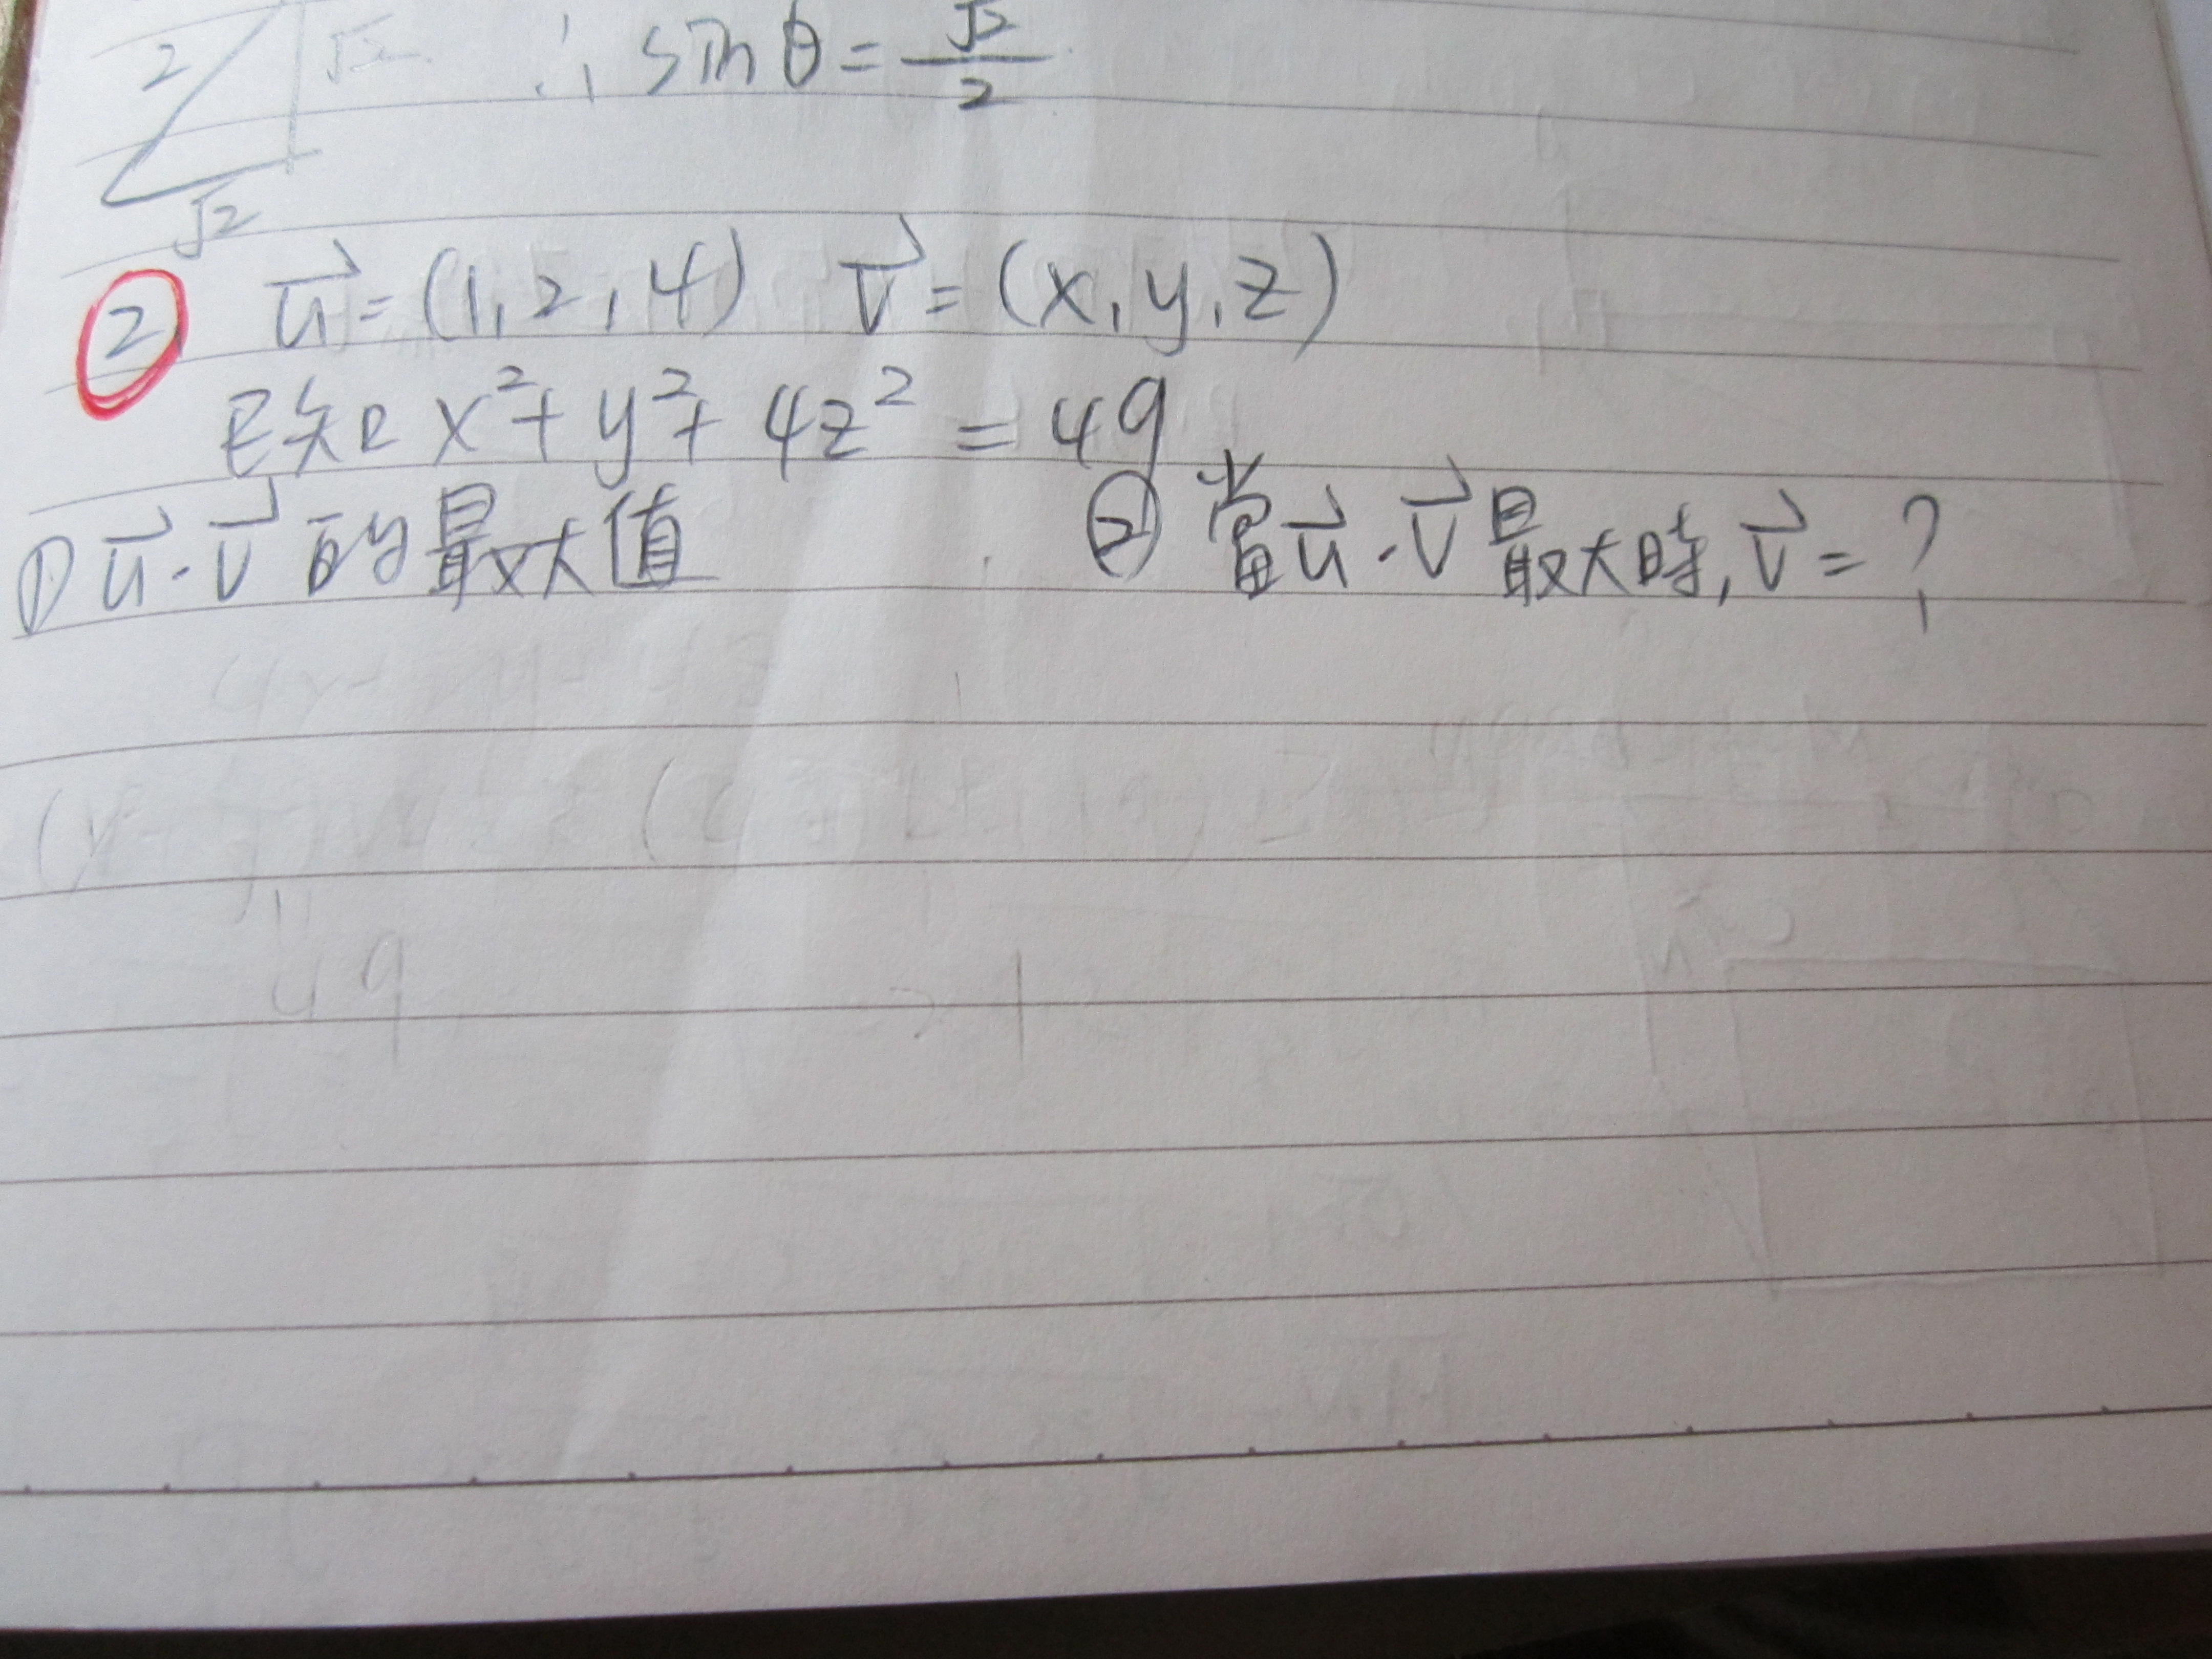 2 √2 ∴ sinθ = √2/2
√2
② u⃗ = (1, 2, 4) v⃗ = (x, y, z)
已知 x² + y² + 4z² = 49
① u⃗·v⃗ 的最大值 ② 當u⃗·v⃗最大時, v⃗ = ?
49